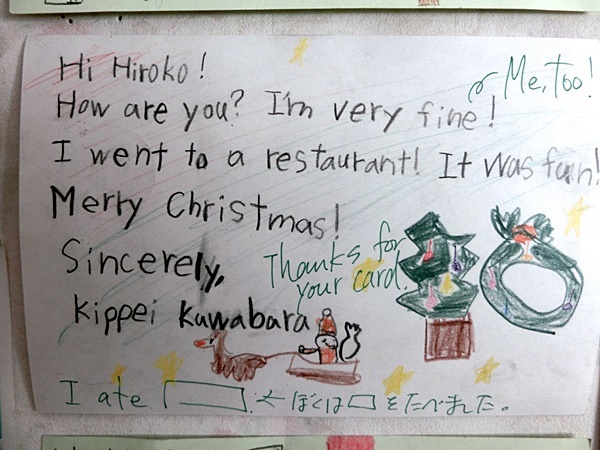 Hi Hiroko!
Me, too!
How are you? I'm very fine!
I went to a restaurant! It was fun!
Merry Christmas!
Sincerely,
Thanks for
your card.
Kippei Kuwabara
I ate □. ← ぼくは□をたべました。